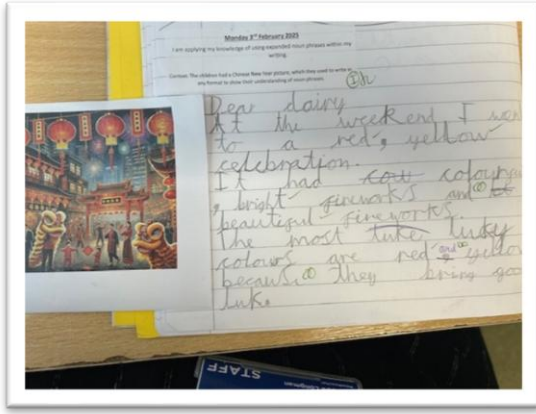 Monday 3rd February 2025
I am applying my knowledge of using expanded noun phrases within my
writing.
Context: The children had a Chinese New Year picture, which they used to write in
any format to show their understanding of noun phrases.
Ⓘh
Dear dairy
At the weekend I wen
to a red, yellow
celebration.
It had cow colourfu
, bright fireworks and
beautiful fireworks.
the most luke lucky
colours are red and yellow
because they bring goo
luk.
STAFF